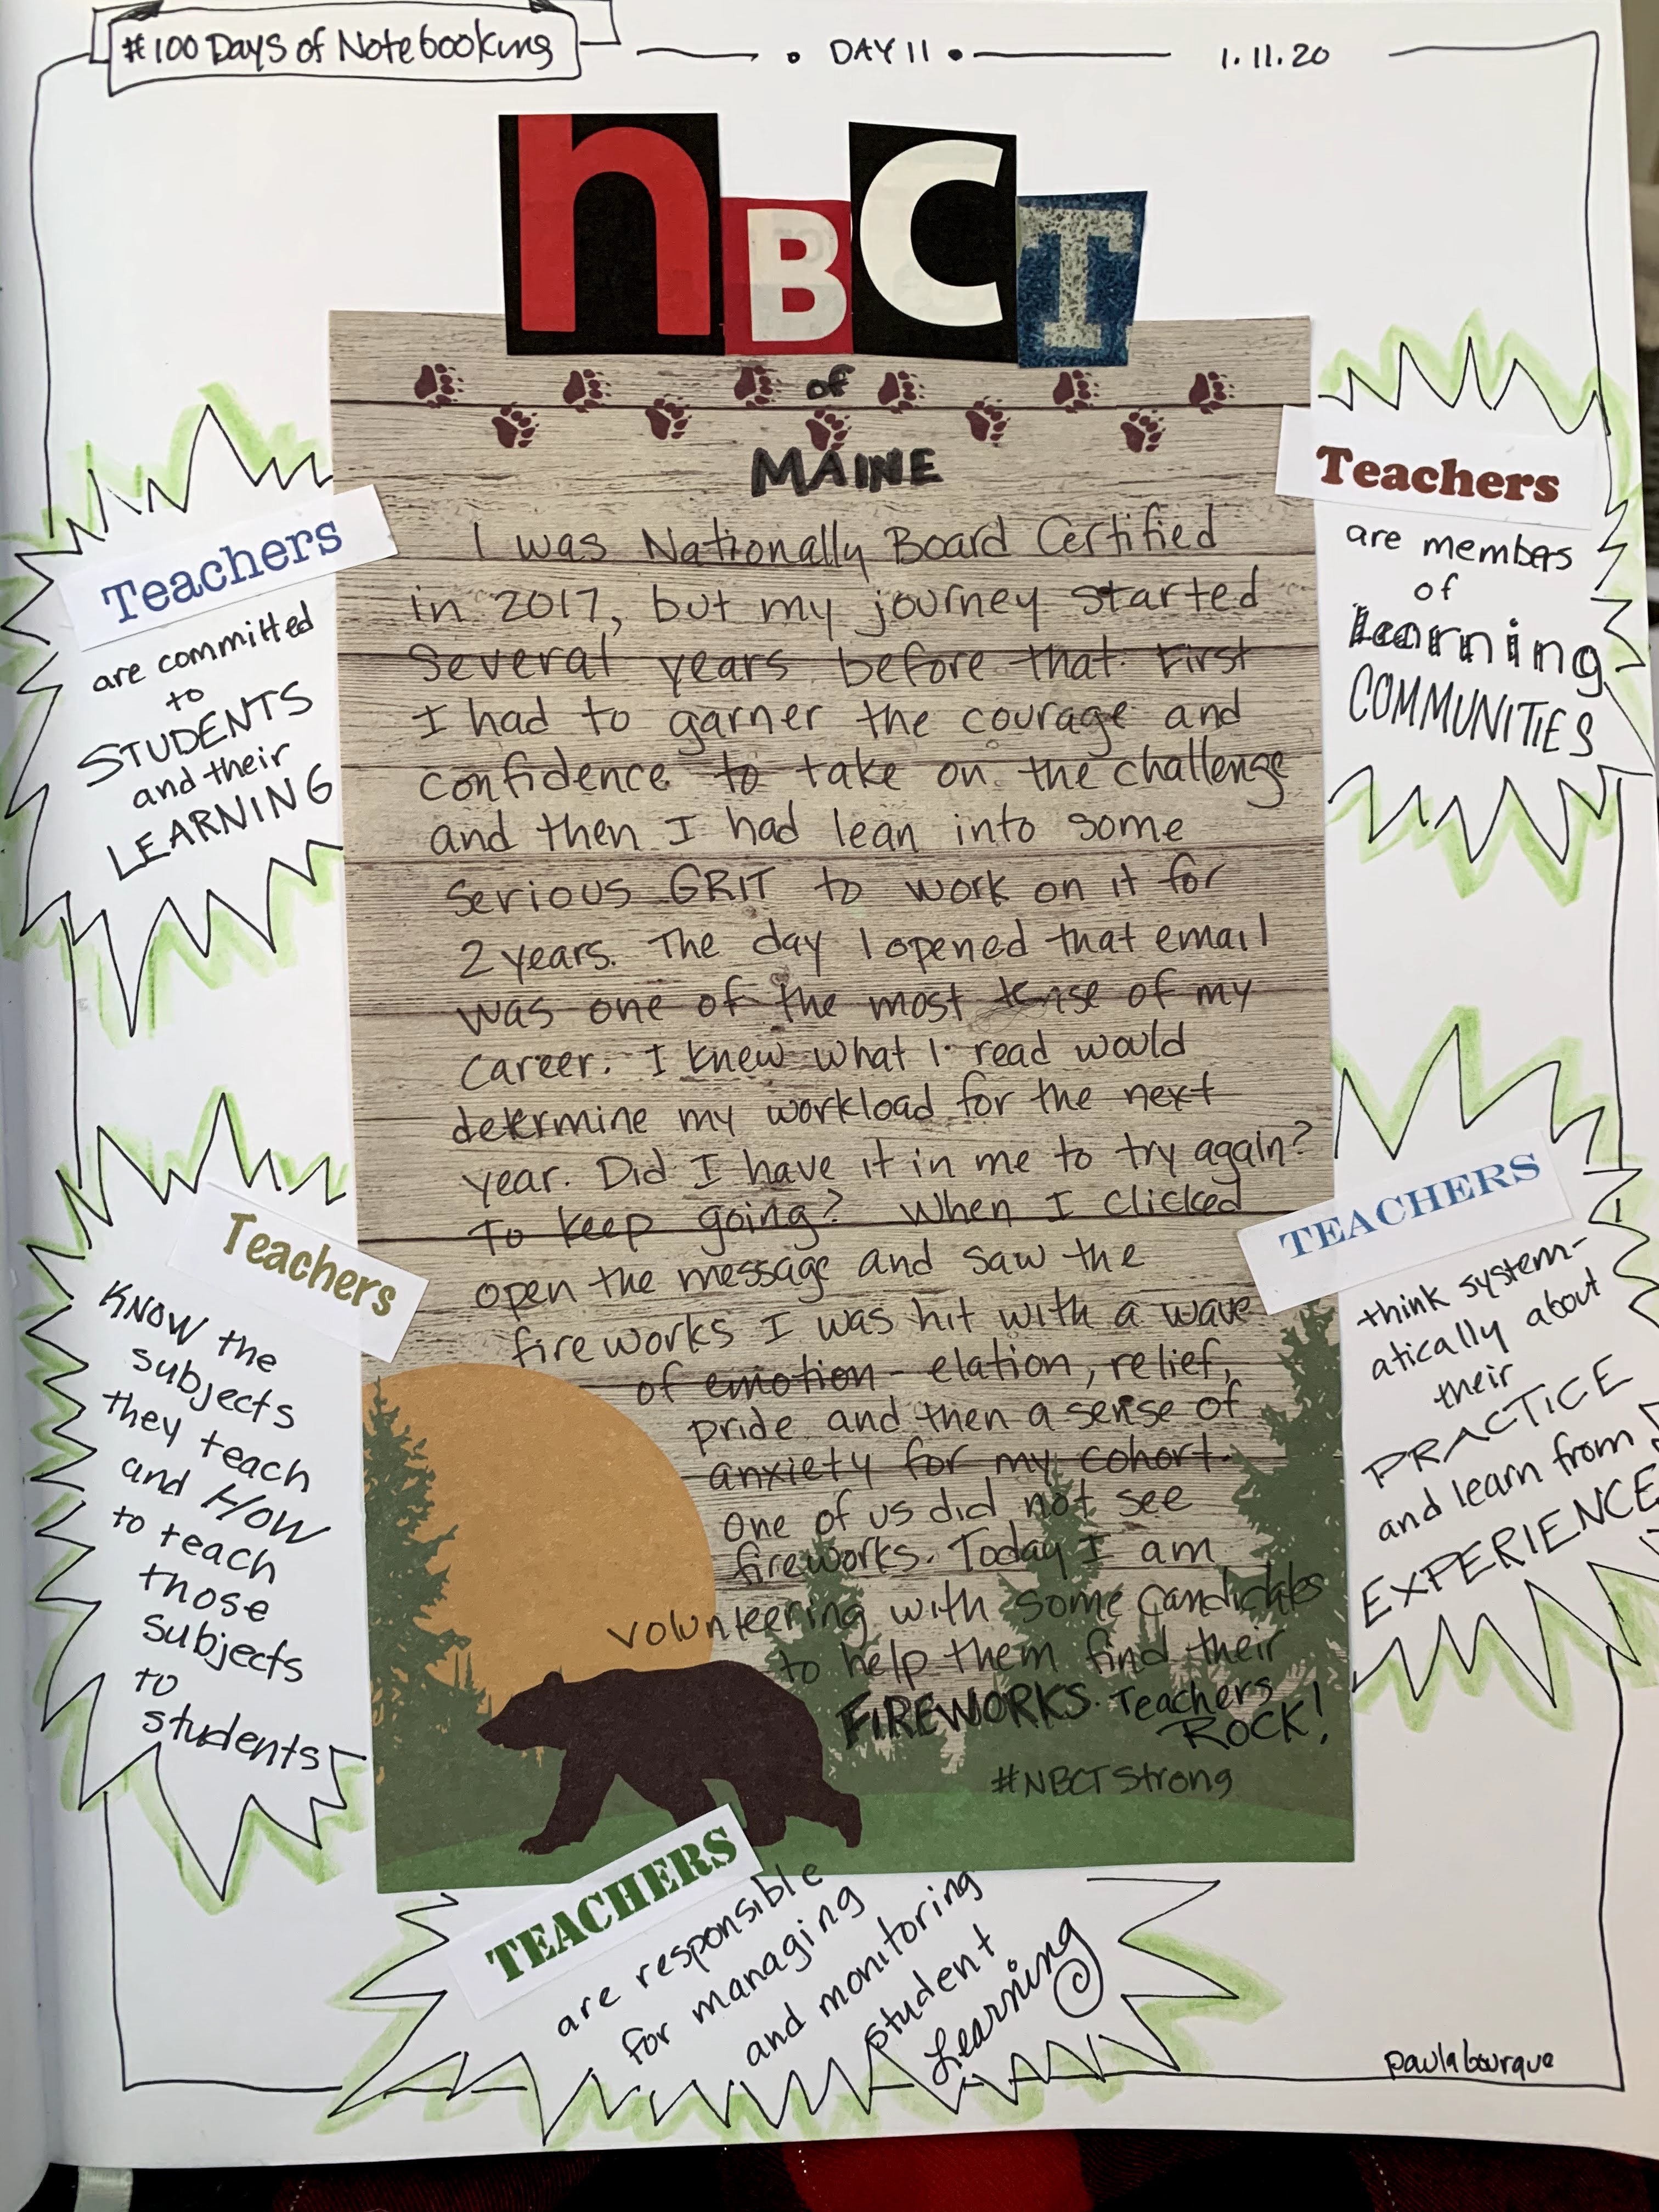 #100 Days of Notebooking
• DAY 11 •
1.11.20
nBCT
of
MAINE
I was Nationally Board Certified
in 2017, but my journey started
several years before that. First
I had to garner the courage and
confidence to take on the challenge
and then I had lean into some
serious GRIT to work on it for
2 years. The day I opened that email
was one of the most tense of my
career. I knew what I read would
determine my workload for the next
year. Did I have it in me to try again?
To keep going? When I clicked
open the message and saw the
fireworks I was hit with a wave
of emotion - elation, relief,
pride and then a sense of
anxiety for my cohort.
One of us did not see
fireworks. Today I am
volunteering with some candidates
to help them find their
FIREWORKS. Teachers
ROCK!
#NBCTStrong
Teachers
are committed
to
STUDENTS
and their
LEARNING
Teachers
are members
of
Learning
COMMUNITIES
Teachers
KNOW the
subjects
they teach
and HOW
to teach
those
subjects
to
students
TEACHERS
think system-
atically about
their
PRACTICE
and learn from
EXPERIENCE
TEACHERS
are responsible
for managing
and monitoring
student
Learning
paulabourque